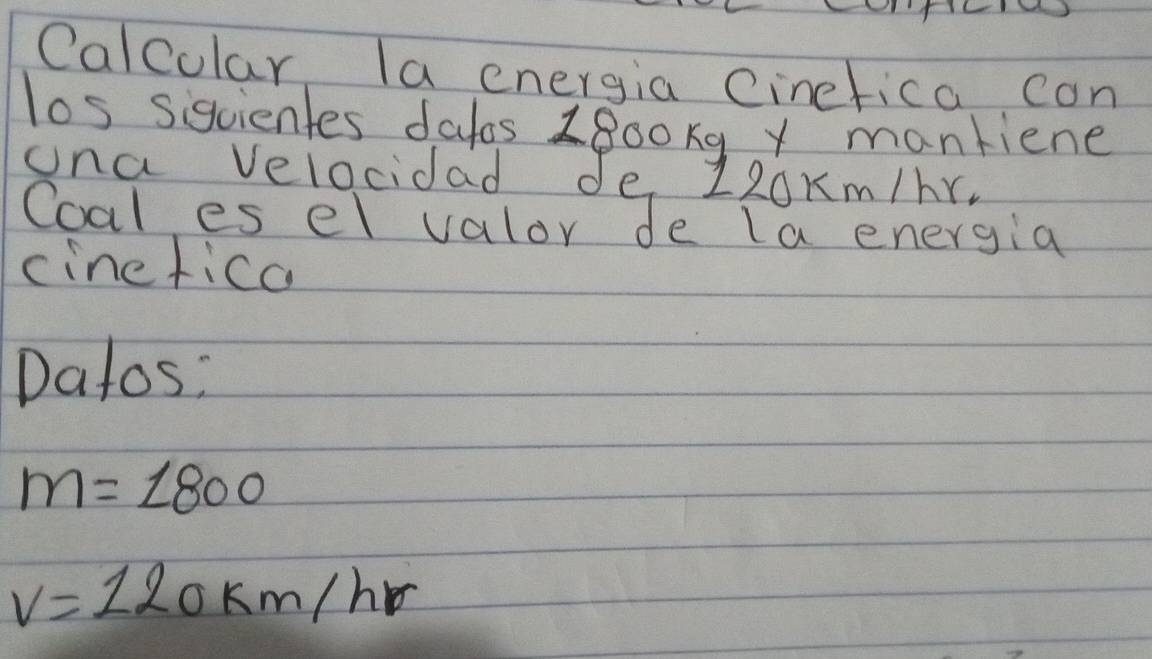 Calcular la energia Cinetica con
los siguientes datos 1800 Kg y mantiene
una velocidad de 120Km/hr.
Coal es el valor de la energia
cinetica
Datos:
m=1800
v=120Km/hr